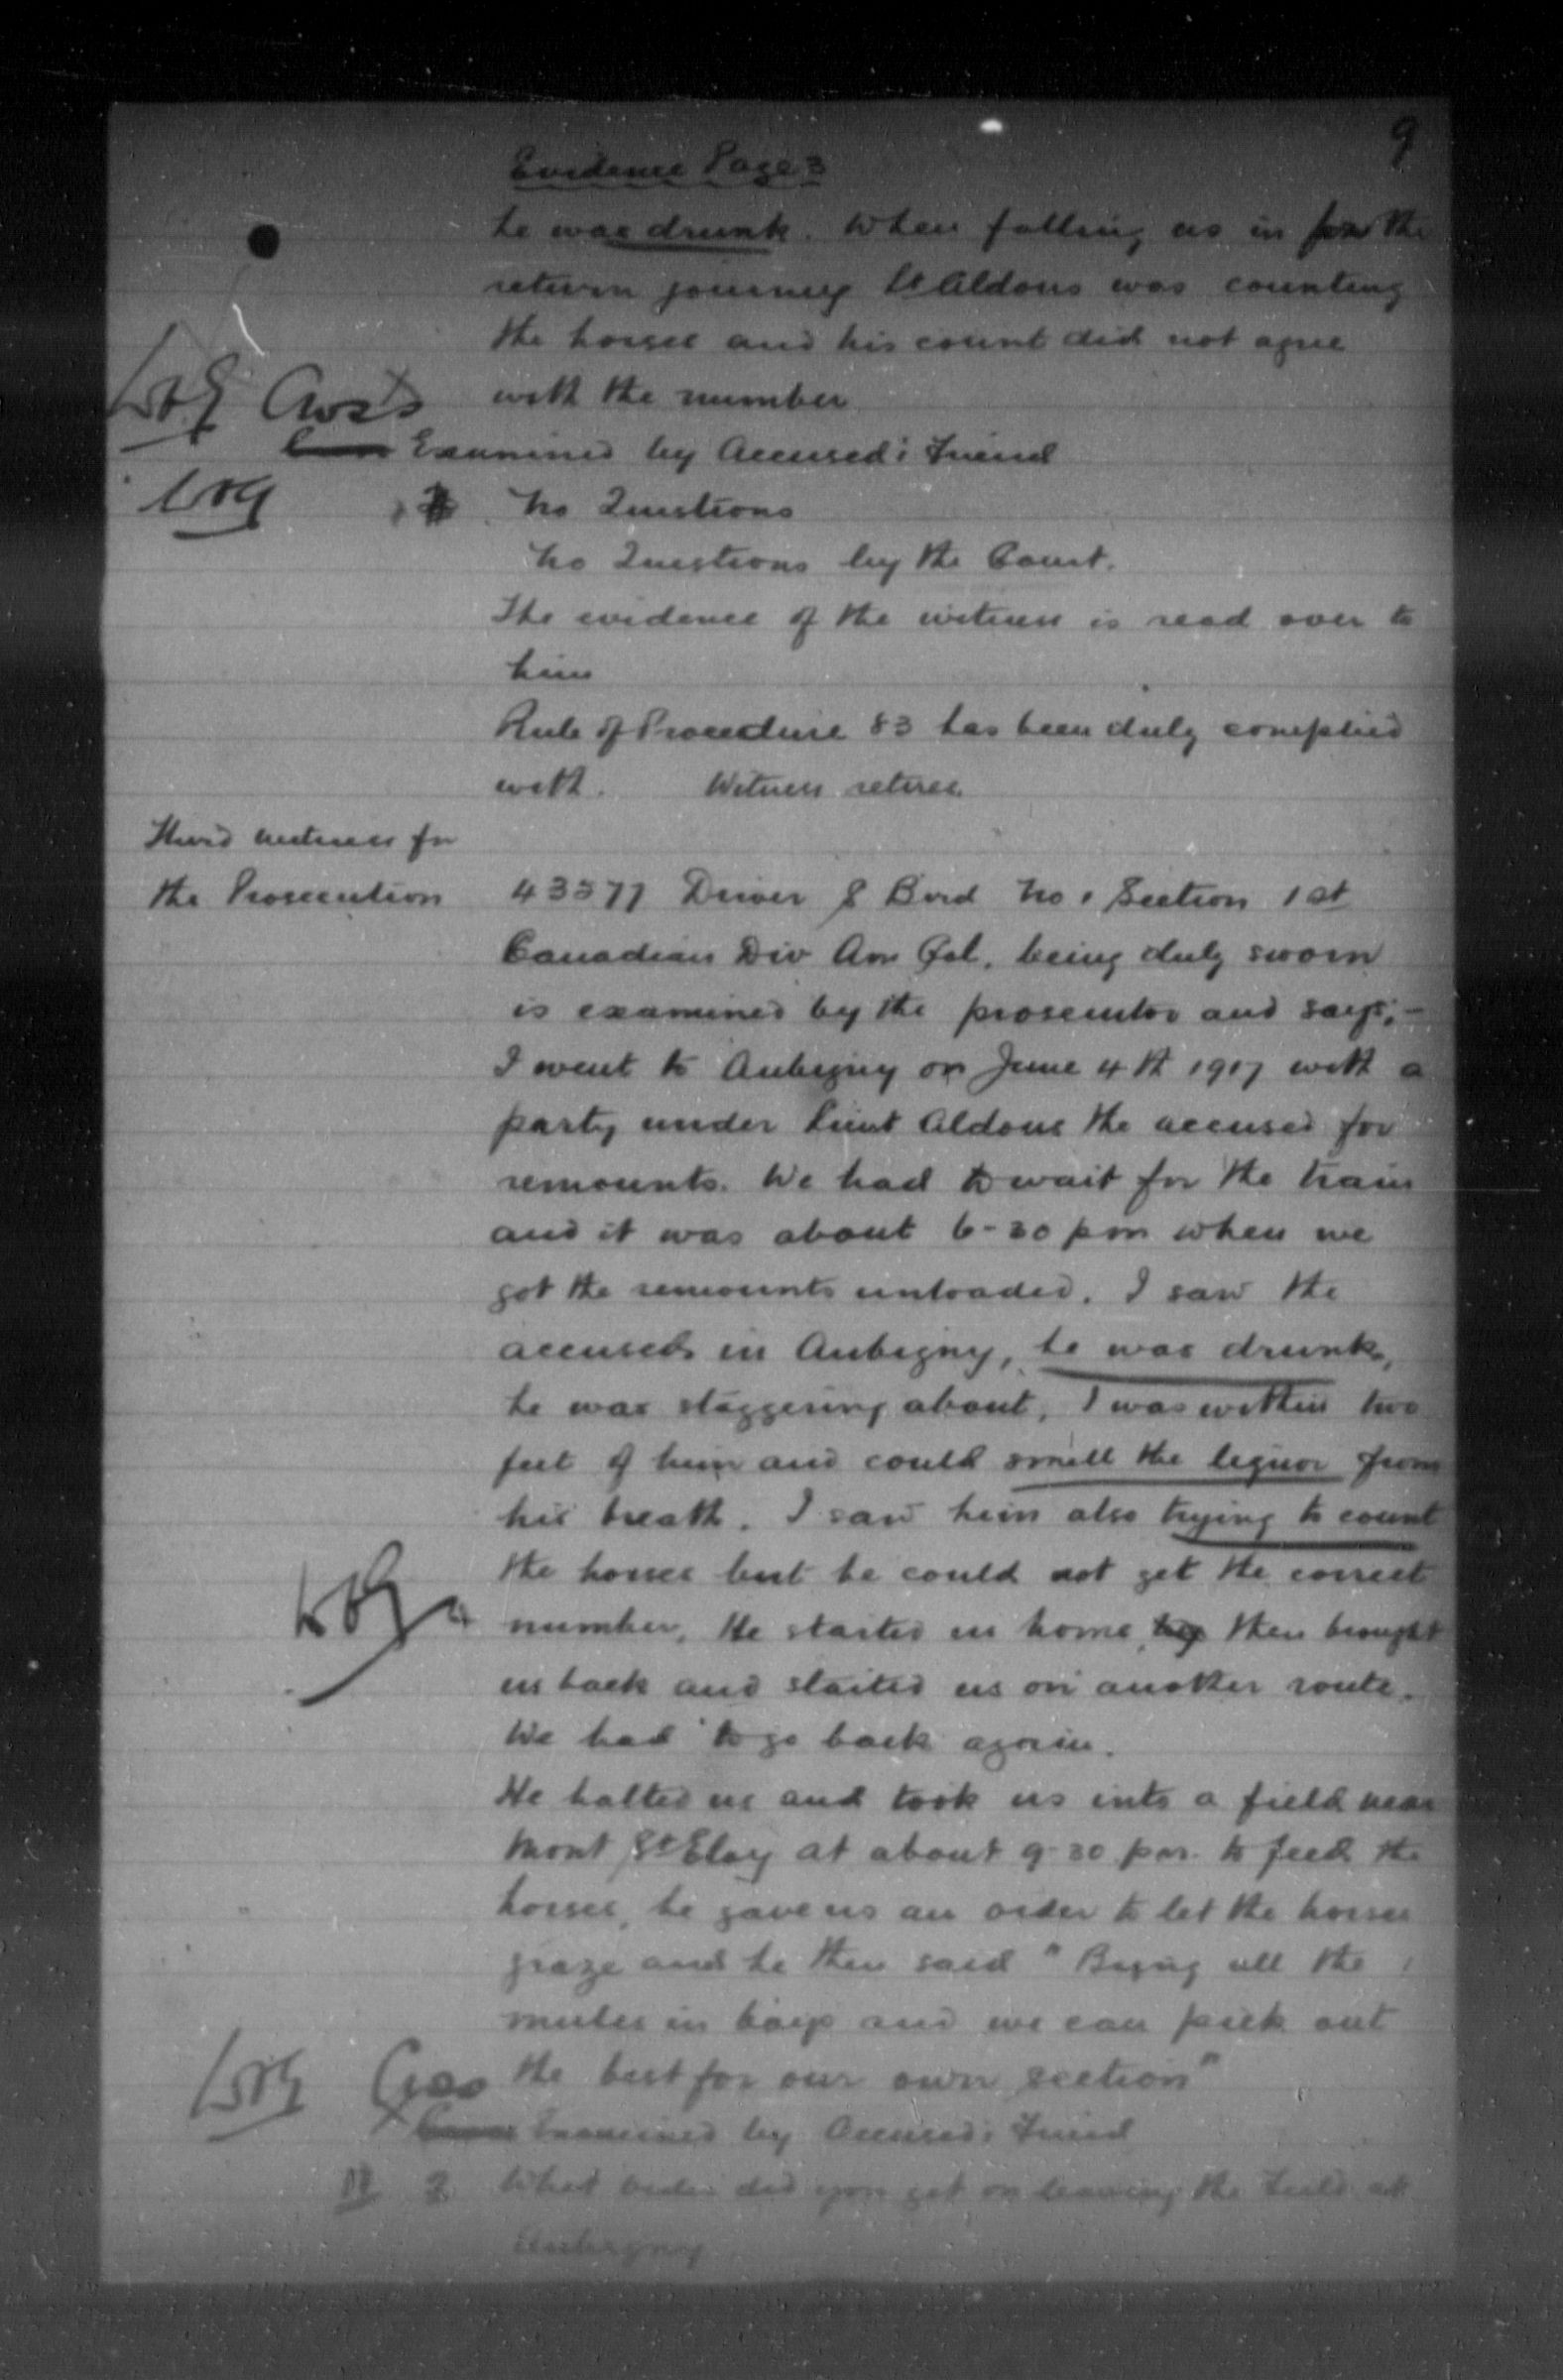 9
Evidence Page 3
he was drunk. When falling us in for the
return journey Lt Aldous was counting
the horses and his count did not agree
with the number
Cross
Examined by Accused's Friend
No Questions
No Questions by the Court.
The evidence of the witness is read over to
him
Rule of Procedure 83 has been duly complied
with. Witness retires.
Third witness for
the Prosecution
43377 Driver S Bird No 1 Section 1st
Canadian Div Am Col. being duly sworn
is examined by the prosecutor and says:-
I went to Aubigny on June 4th 1917 with a
party under Lieut Aldous the accused for
remounts. We had to wait for the train
and it was about 6-30 pm when we
got the remounts unloaded. I saw the
accused in Aubigny, he was drunk,
he was staggering about, I was within two
feet of him and could smell the liquor from
his breath. I saw him also trying to count
the horses but he could not get the correct
number, He started us home, then brought
us back and started us on another route.
We had to go back again.
He halted us and took us into a field near
Mont St Eloy at about 9-30 pm. to feed the
horses, he gave us an order to let the horses
graze and he then said "Bring all the
mules in boys and we can pick out
the best for our own section"
Cross
Examined by Accused's Friend
Q What order did you get on leaving the field at
Aubigny